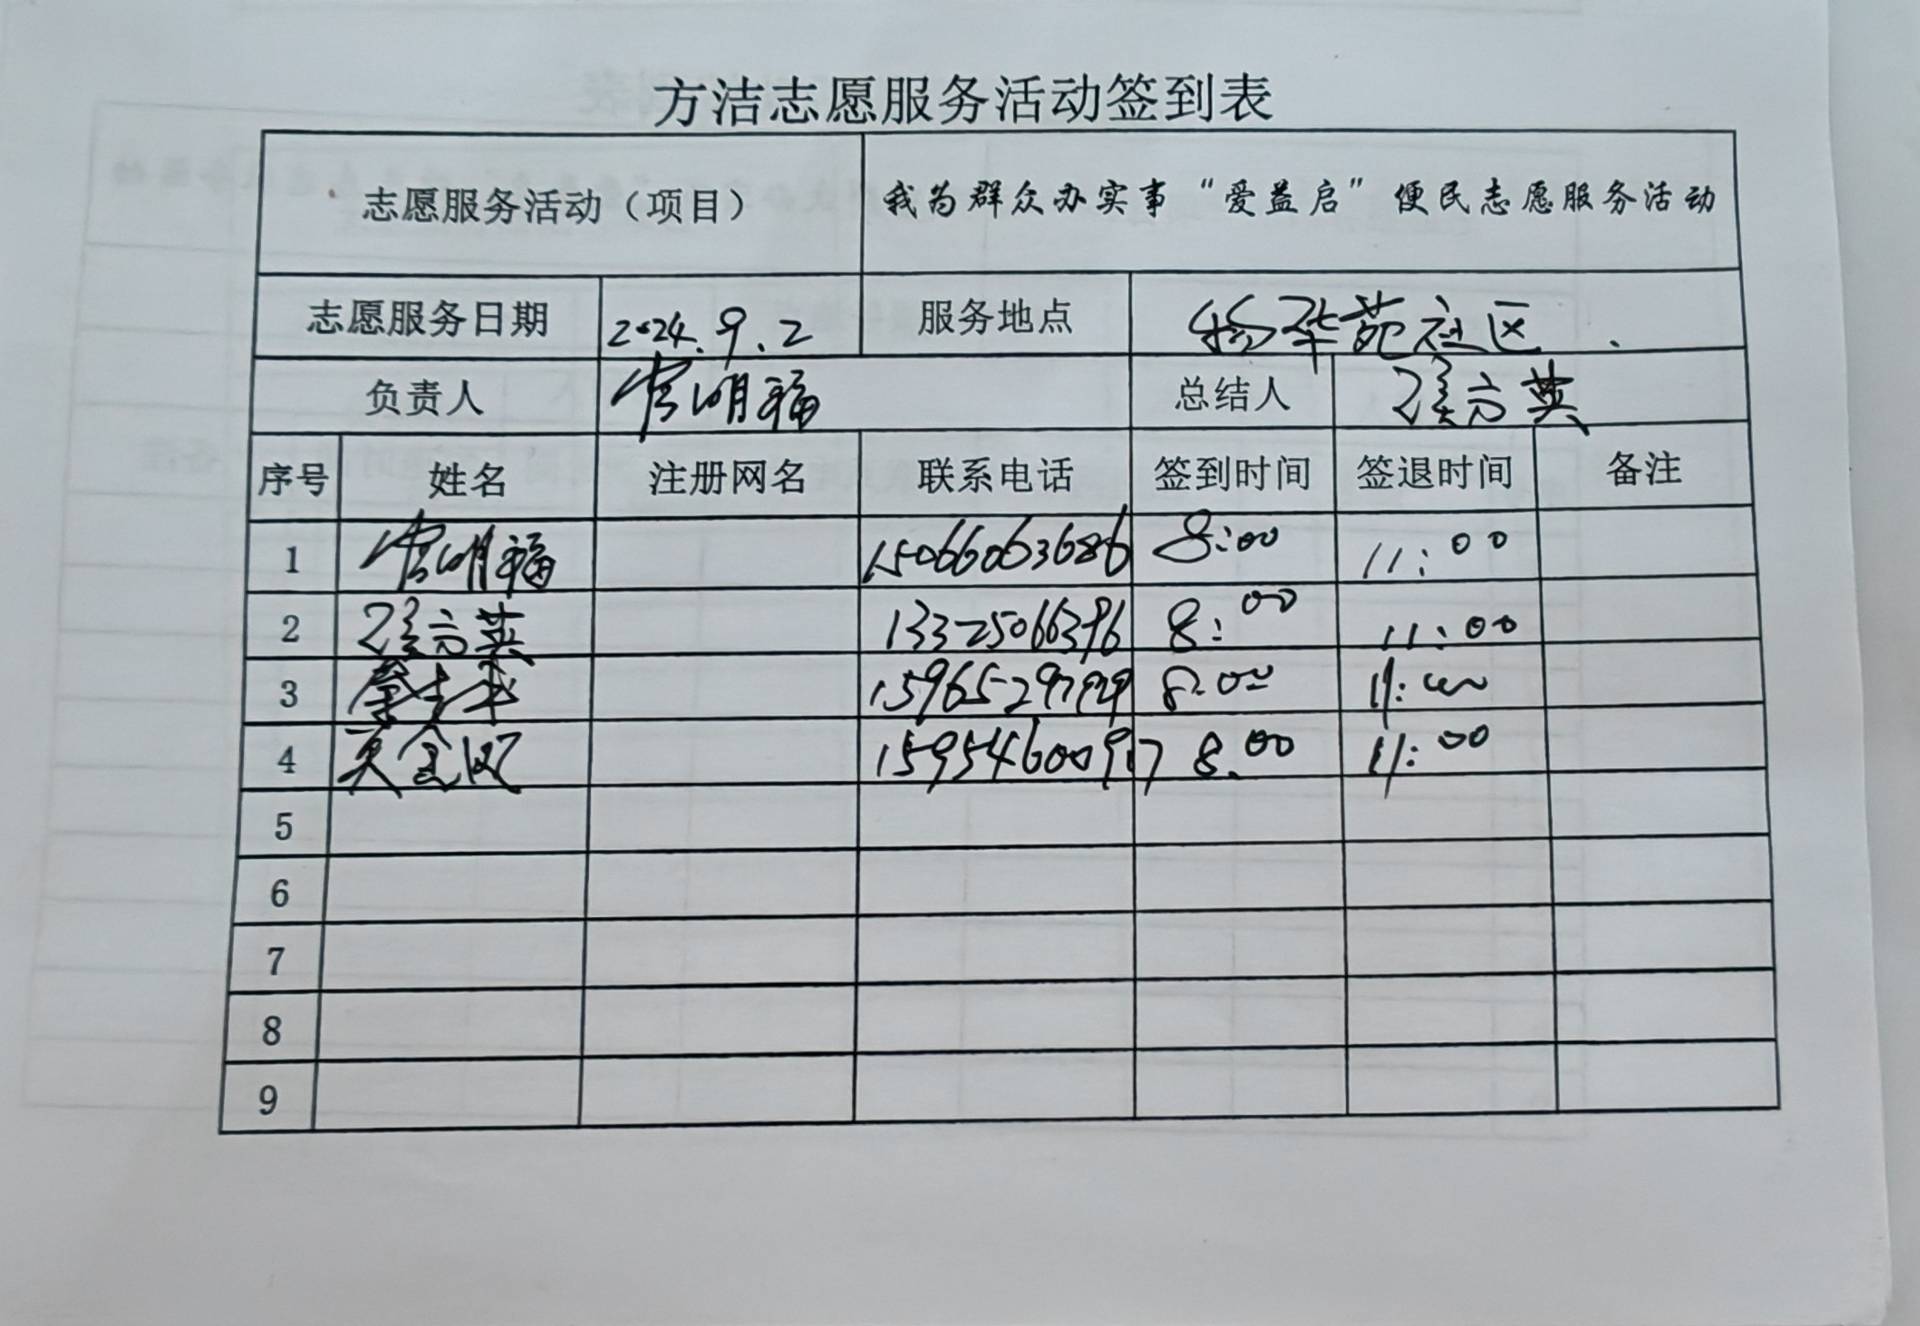 方洁志愿服务活动签到表
志愿服务活动（项目） 我为群众办实事“爱益启”便民志愿服务活动
志愿服务日期 2024.9.2 服务地点 杨华苑社区.
负责人 明福 总结人 方英
序号 姓名 注册网名 联系电话 签到时间 签退时间 备注
1 明福 15066063686 8:00 11:00
2 方英 13325066396 8:00 11:00
3 8:00 11:00
4 吴金 15954600917 8:00 11:00
5
6
7
8
9